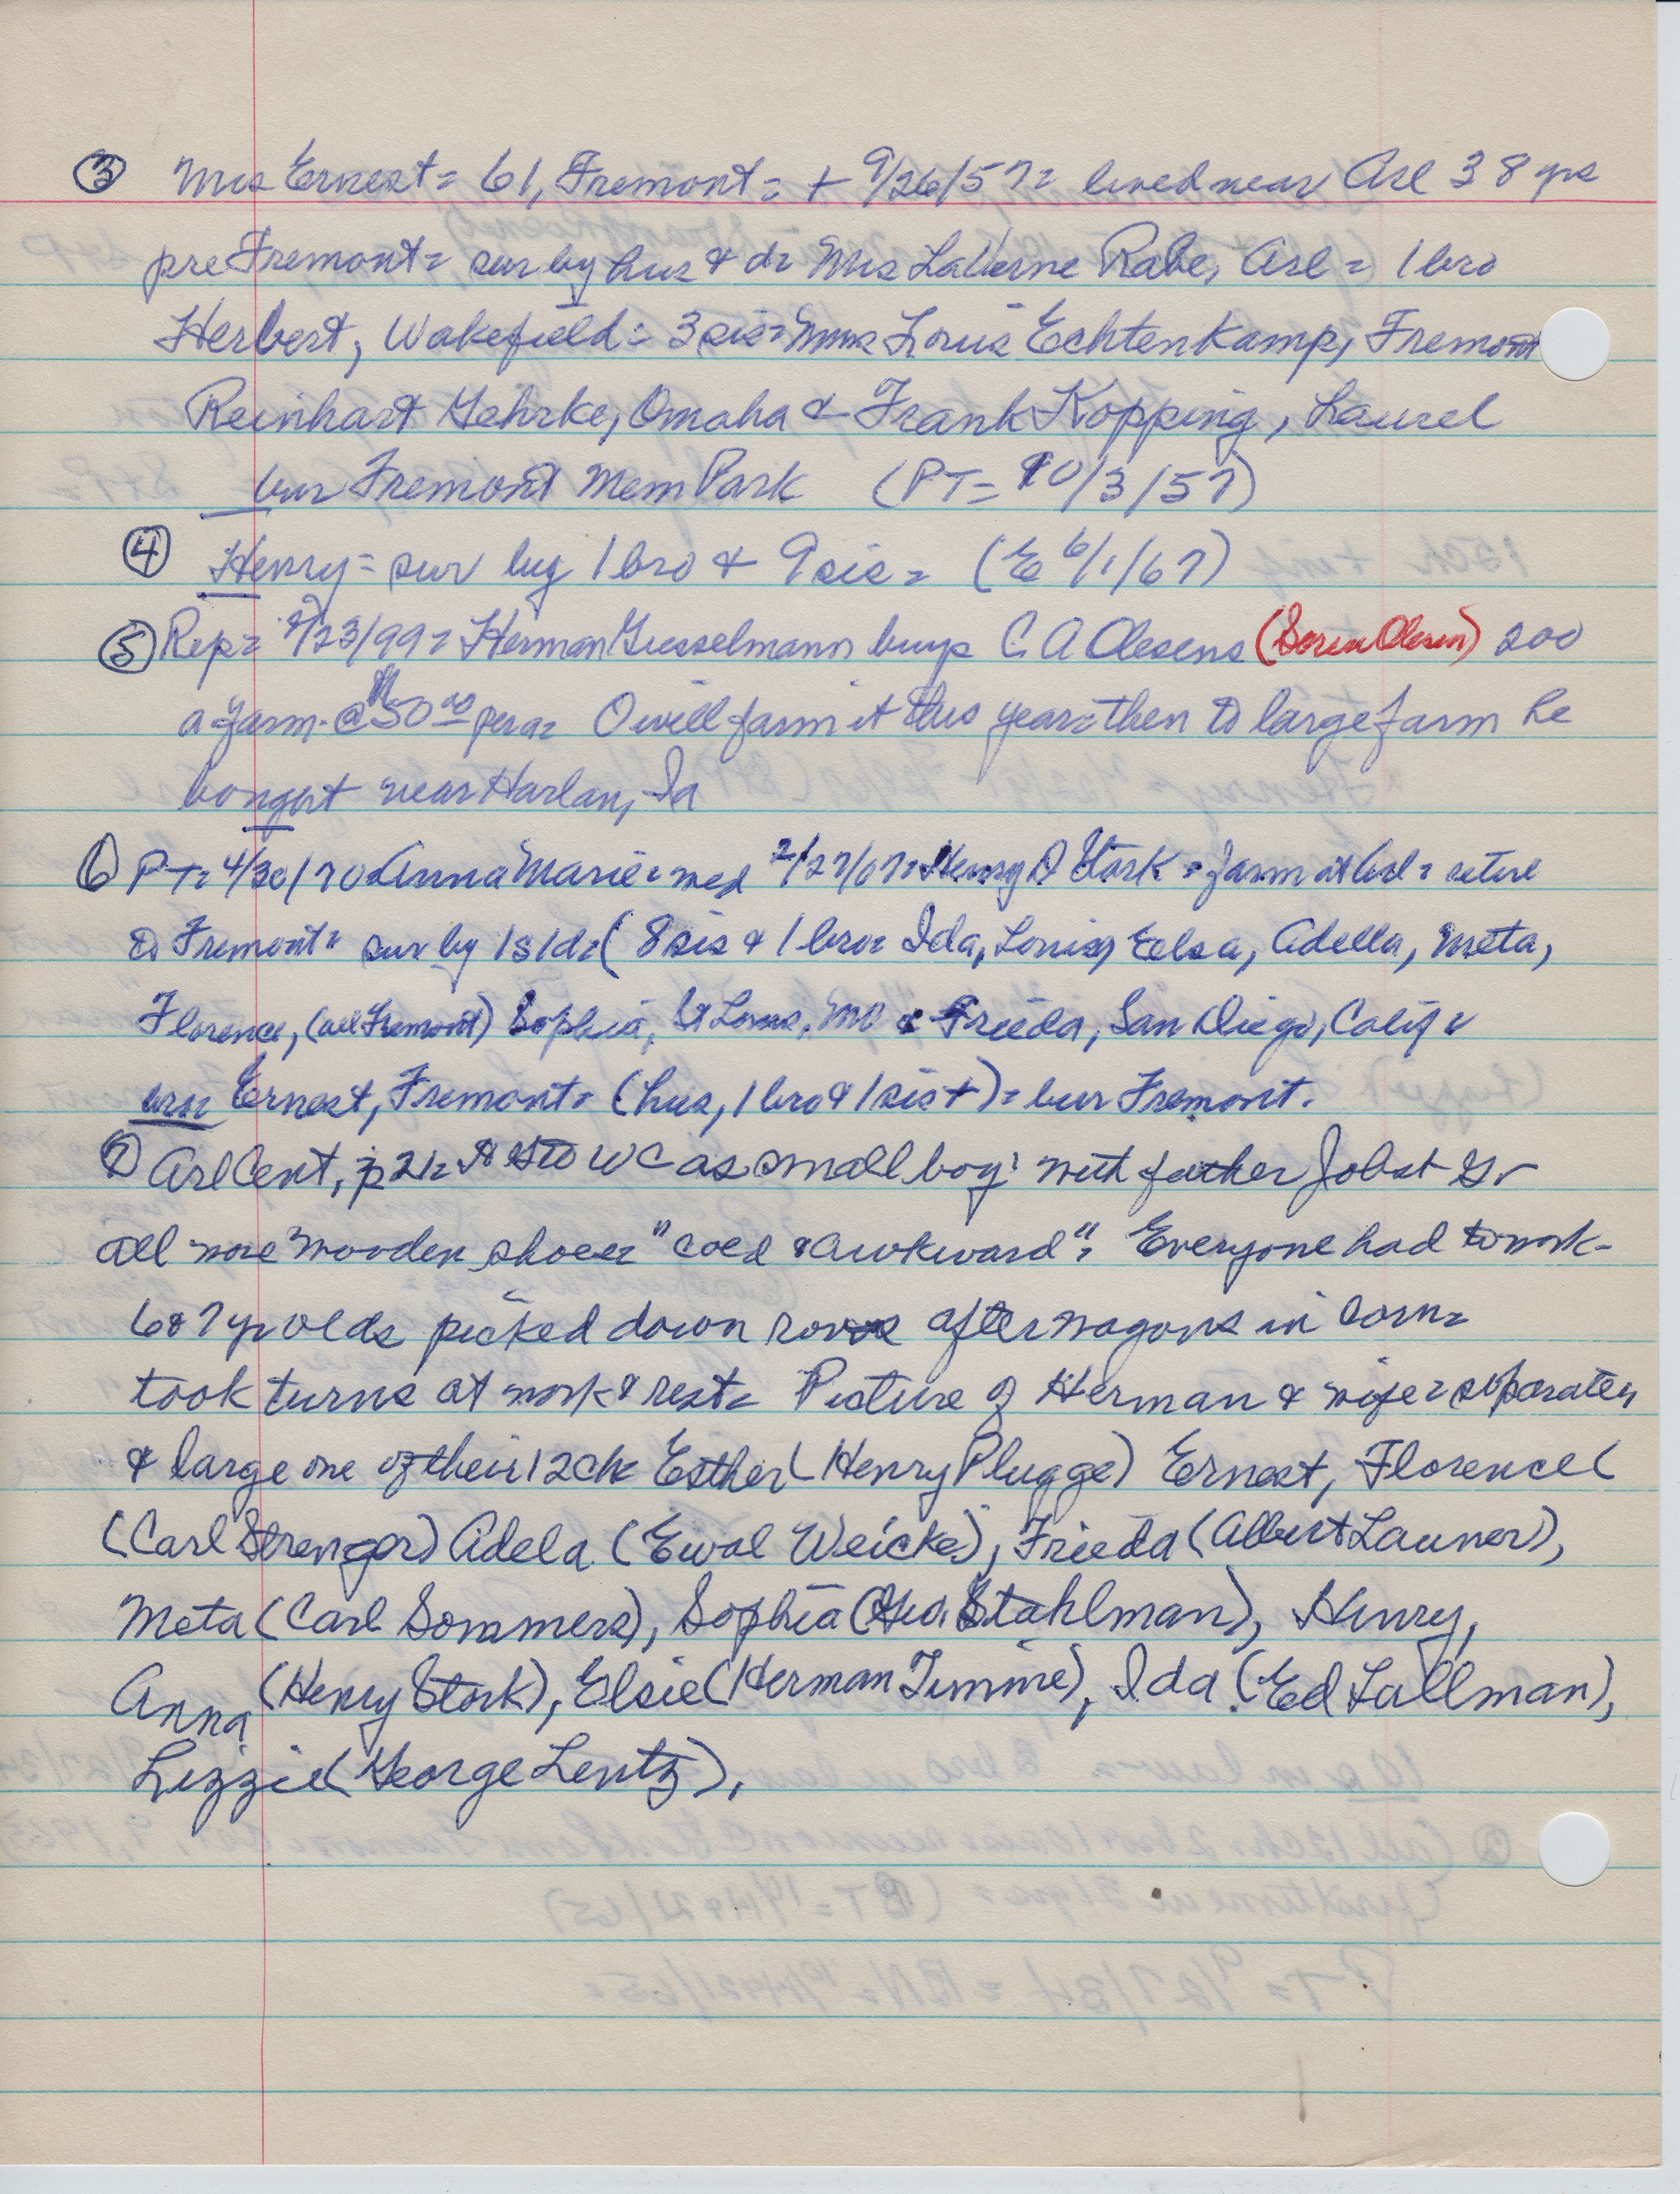 ③ Mrs Ernest = 61, Fremont = + 9/26/57 = lived near Arl 38 yrs
pre Fremont = sur by hus & d = Mrs LaVerne Rabe, Arl = 1 bro
Herbert, Wakefield = 3 sis = Mmes Louis Echtenkamp, Fremont
Reinhart Gehrke, Omaha & Frank Kopping, Laurel
bur Fremont Mem Park (PT = 10/3/57)
④ Henry = sur by 1 bro & 9 sis = (E 6/1/67)
⑤ Rep = /23/99 = Herman Giesselmann buys C A Olesens (Soren Olesen) 200
a farm @ $50.00 per a = O will farm it this year = then to large farm he
bought near Harlan, Ia
⑥ PT = 4/30/70 = Anna Marie = med 2/27/07 = Henry D Stork = farm at Arl = retire
to Fremont = sur by 1s 1d = (8 sis & 1 bro = Ida, Louise, Elsa, Adella, Meta,
Florence, (all Fremont) Sophia, St Louis, Mo & Frieda, San Diego, Calif &
bro = Ernest, Fremont = (hus, 1 bro & 1 sis +) = bur Fremont.
⑦ Arl Cent, p 21 = to WC as small boy with father Jobst Gr
all wore wooden shoes = "cold & awkward" = Everyone had to work -
6 & 7 yr olds picked down rows after wagons in corn =
took turns at work & rest = Picture of Herman & wife = separately
& large one of their 12 ch = Esther (Henry Plugge) Ernest, Florence (
(Carl Strenger) Adela (Ewal Weicke), Frieda (Albert Launer),
Meta (Carl Sommers), Sophia (Geo. Stahlman), Henry,
Anna (Henry Stork), Elsie (Herman Timme), Ida (Ed Lallman),
Lizzie (George Lentz),